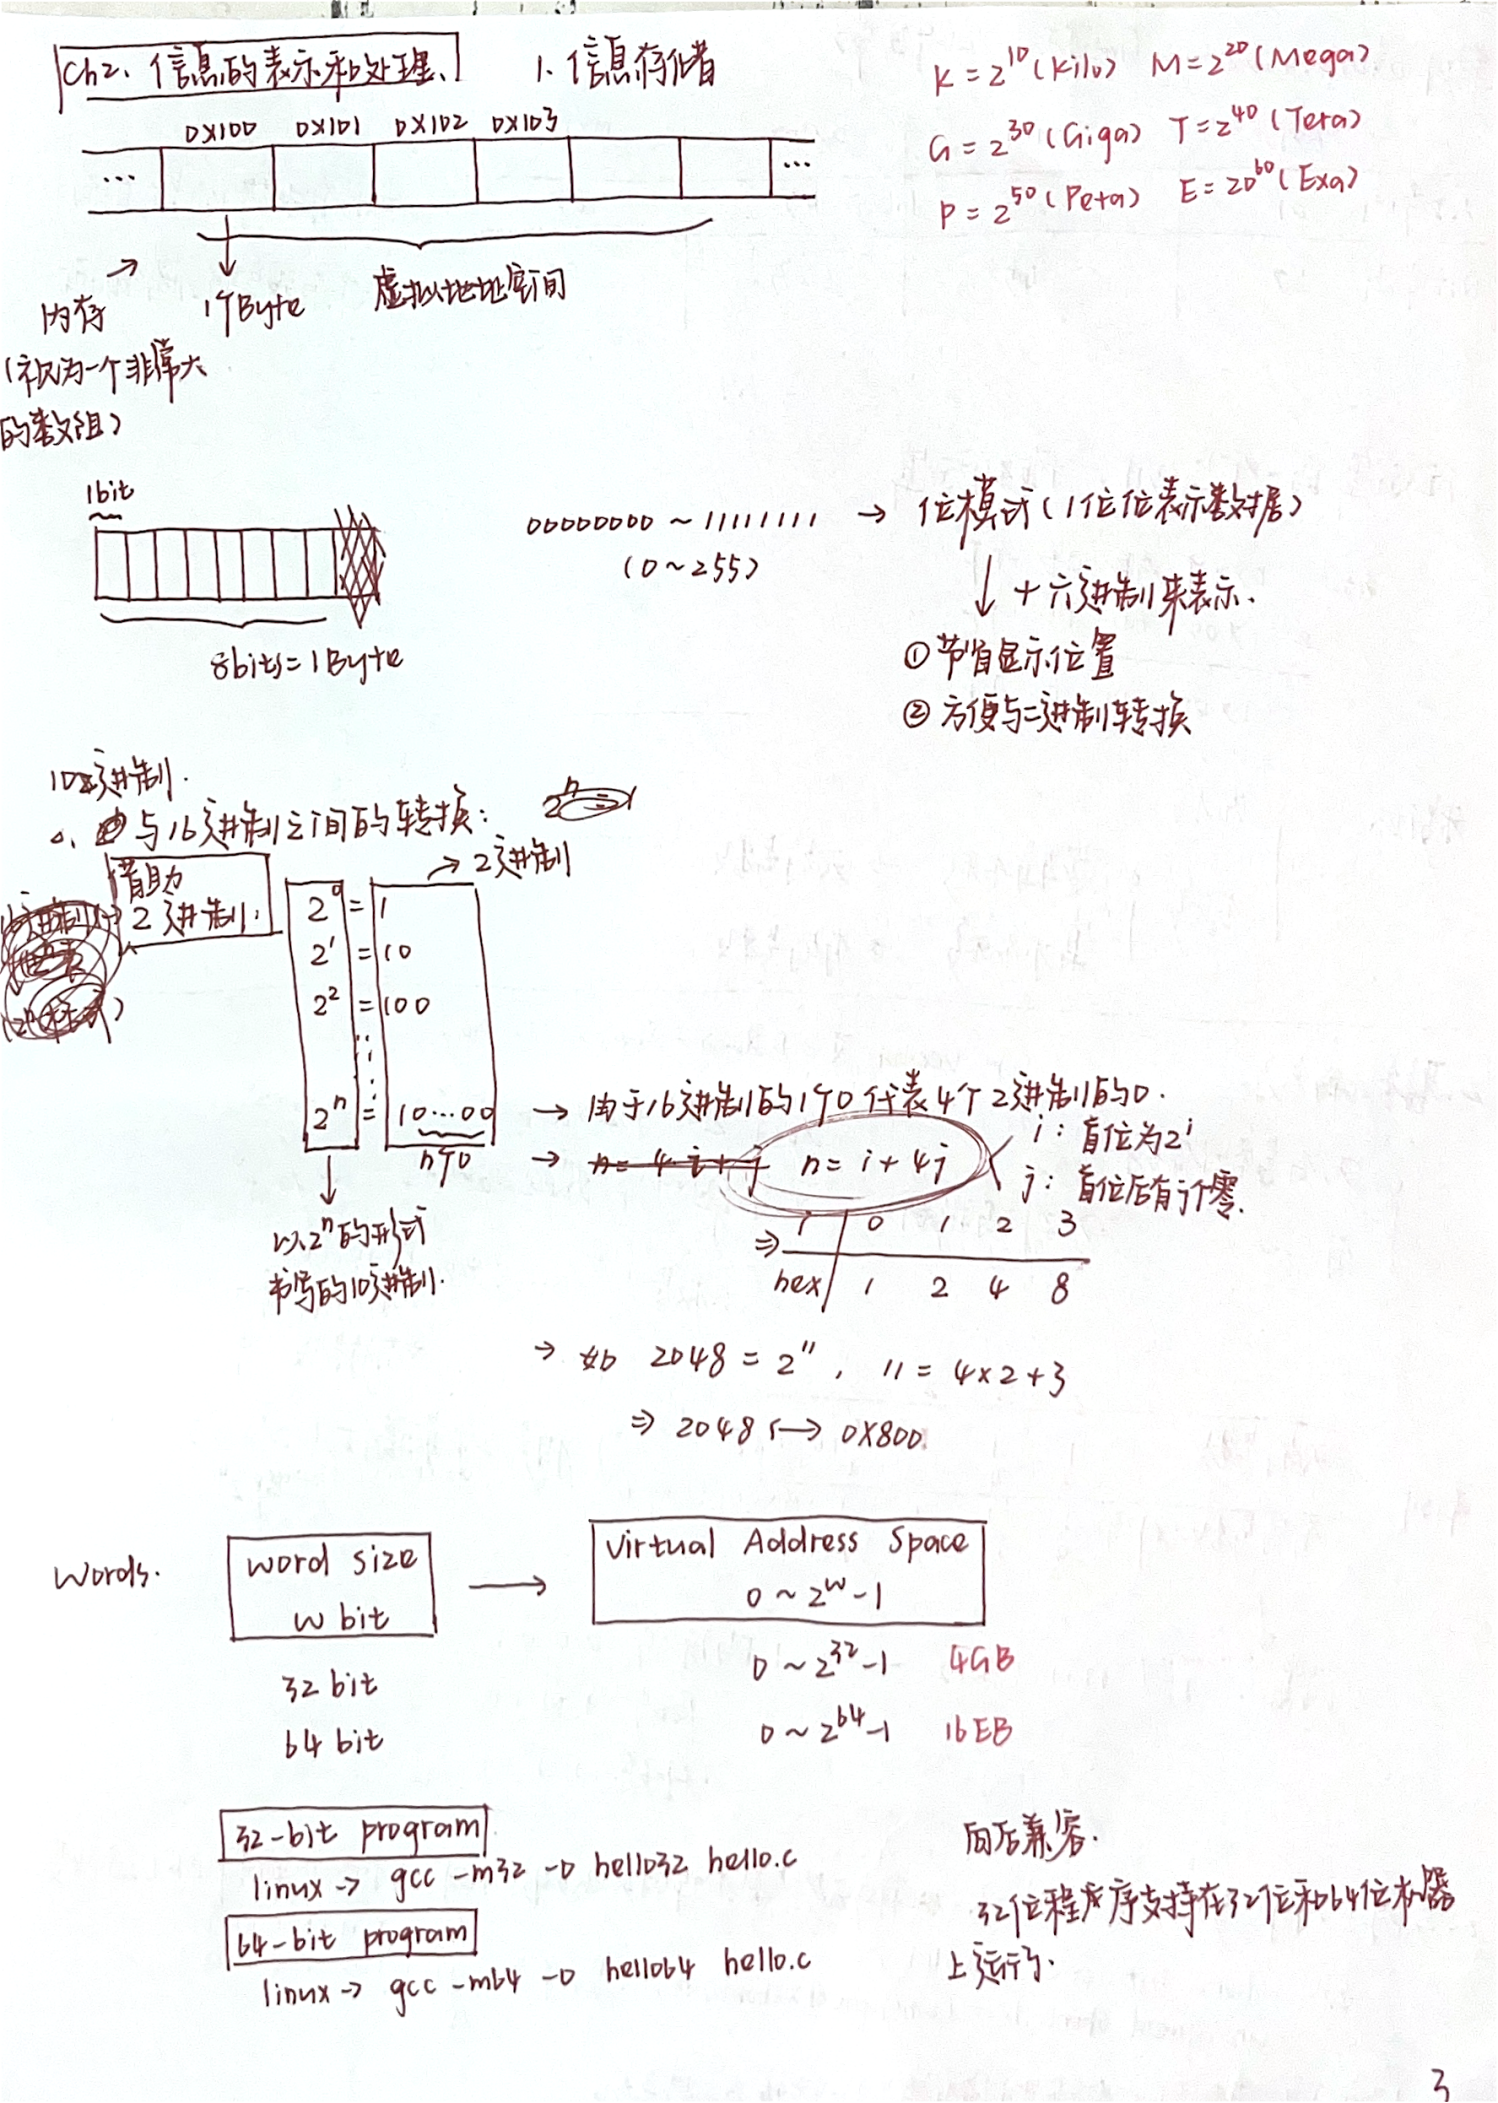 Ch2、信息的表示和处理、
1、信息存储
K = 2^10 (Kilo) M = 2^20 (Mega)
G = 2^30 (Giga) T = 2^40 (Tera)
P = 2^50 (Peta) E = 20^60 (Exa)
0X100 0X101 0X102 0X103
... ...
内存
(视为一个非常大
的数组)
1个Byte
虚拟地址空间
1bit
8bits = 1Byte
00000000 ~ 11111111 → 位模式 (1位位表示数据)
(0 ~ 255)
↓ 十六进制来表示.
① 节省显示位置
② 方便与二进制转换
10进制.
与16进制之间的转换:
借助
2进制.
→ 2进制
2^0 = 1
2^1 = 10
2^2 = 100
2^n = 10...00
n个0
↓
以2^n的形式
书写的10进制.
→ 由于16进制的1个0代表4个2进制的0.
→ n = 4i + j n = i + 4j
i: 首位为2^i
j: 首位后有j个零.
⇒ i 0 1 2 3
hex 1 2 4 8
→ 如 2048 = 2^11, 11 = 4×2+3
⇒ 2048 ↔ 0X800
Words.
word size
w bit
→
Virtual Address Space
0 ~ 2^w - 1
32 bit
0 ~ 2^32 - 1 4GB
64 bit
0 ~ 2^64 - 1 16EB
32-bit program
linux → gcc -m32 -o hello32 hello.c
64-bit program
linux → gcc -m64 -o hello64 hello.c
向后兼容.
32位程序支持在32位和64位机器
上运行.
3